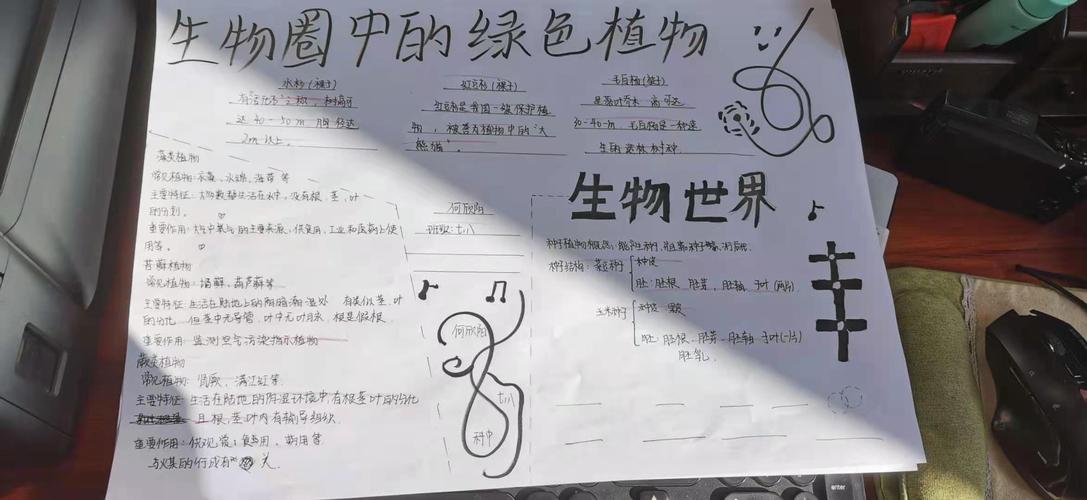 生物圈中的绿色植物
水杉(裸子)
有活化石之称，树高可
达40-50m 胸径达
2m以上。
红豆杉(裸子)
红豆杉是我国一级保护植
物，被誉为植物中的"大
熊猫"。
毛白杨(被子)
是落叶乔木 高可达
30-40m 毛白杨是一种速
生的造林树种.
藻类植物
常见植物:水绵、海带等
主要特征:大多数都生活在水中，没有根、茎、叶
的分别。
重要作用:大气中氧气的主要来源，供食用，工业和医药上使
用等。
苔藓植物
常见植物:墙藓、葫芦藓等
主要特征:生活在陆地上的阴暗潮湿处 有类似茎、叶
的分化，但茎中无导管，叶中无叶脉，根是假根
重要作用:监测空气污染指示植物
蕨类植物
常见植物:肾蕨、满江红等
主要特征:生活在陆地的阴湿环境中，有根茎叶的分化
且根，茎叶内有输导组织
重要作用:供观赏，食用、药用等
与煤的形成有关.
何欣阳
班级:七八
何欣阳
七八
科中
生物世界
种子植物概念:能产生种子,
种子结构:菜豆种子
种皮
胚:胚根 胚芽、胚轴、子叶(两片)
玉米种子
种皮 果皮
胚:胚根、胚芽、胚轴 子叶(一片)
胚乳.
enter